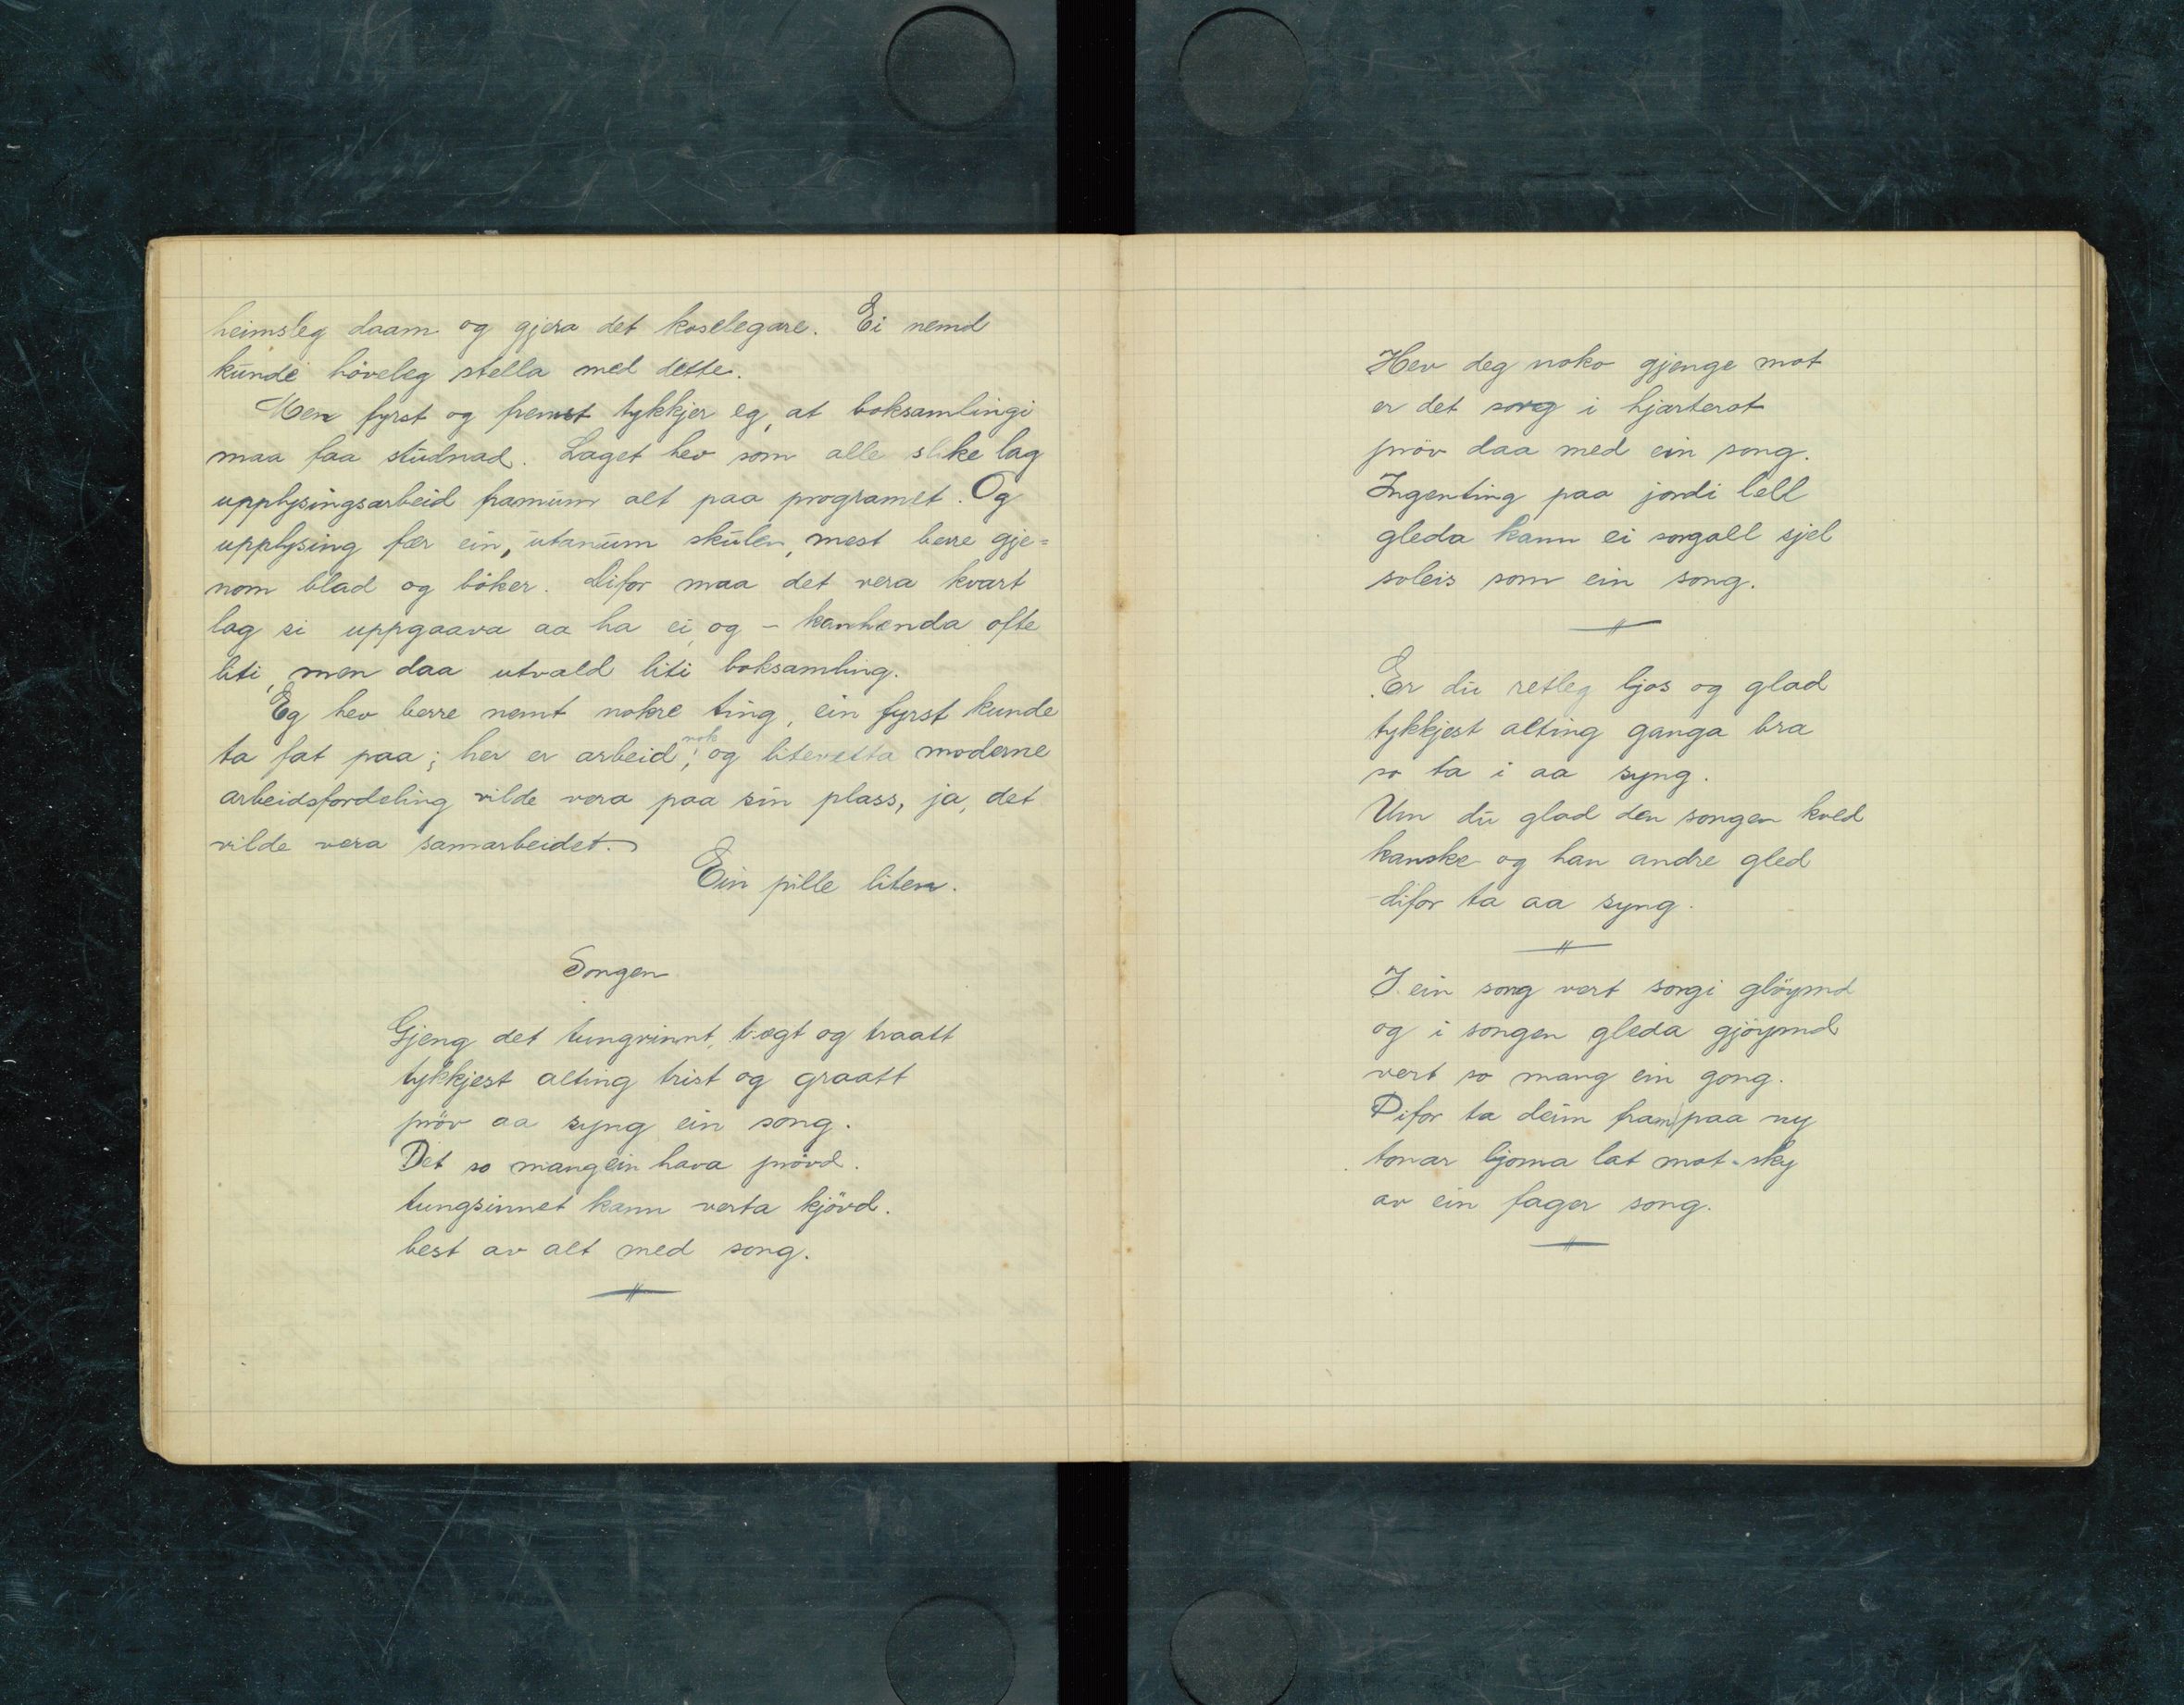 heimsleg daam og gjera det koselegare. Ei nemd
kunde höveleg stella med dette.
Men fyrst og fremst tykkjer eg, at boksamlingi
maa faa studnad. Laget hev som alle slike lag
upplysingsarbeid framum alt paa programet. Og
upplysing fær ein, utanum skulen, mest berre gje=
nom blad og böker. Difor maa det vera kvart
lag si uppgaava aa ha ei, og - kanhenda ofte
liti, men daa utvald liti boksamling.
Eg hev berre nemt nokre ting, ein fyrst kunde
ta fat paa; her er arbeid nok; og litevetta moderne
arbeidsfordeling vilde vera paa sin plass, ja, det
vilde vera samarbeidet.
Ein pille liten.
Songen
Gjeng det tungvinnt, trægt og traatt
tykkjest alting trist og graatt
pröv aa syng ein song.
Det so mang ein hava prövd.
tungsinnet kann verta kjövd.
best av alt med song.
Hev deg noko gjenge mot
er det sorg i hjarterot
pröv daa med ein song.
Ingenting paa jordi lell
gleda kann ei sorgall sjel
soleis som ein song.
Er du retleg ljos og glad
tykkjest alting ganga bra
so ta i aa syng.
Um du glad den songen kved
kanske og han andre gled
difor ta aa syng.
I ein song vert sorgi glöymd
og i songen gleda gjöymd
vert so mang ein gong.
Difor ta deim fram paa ny
tonar ljoma lat mot sky
av ein fager song.